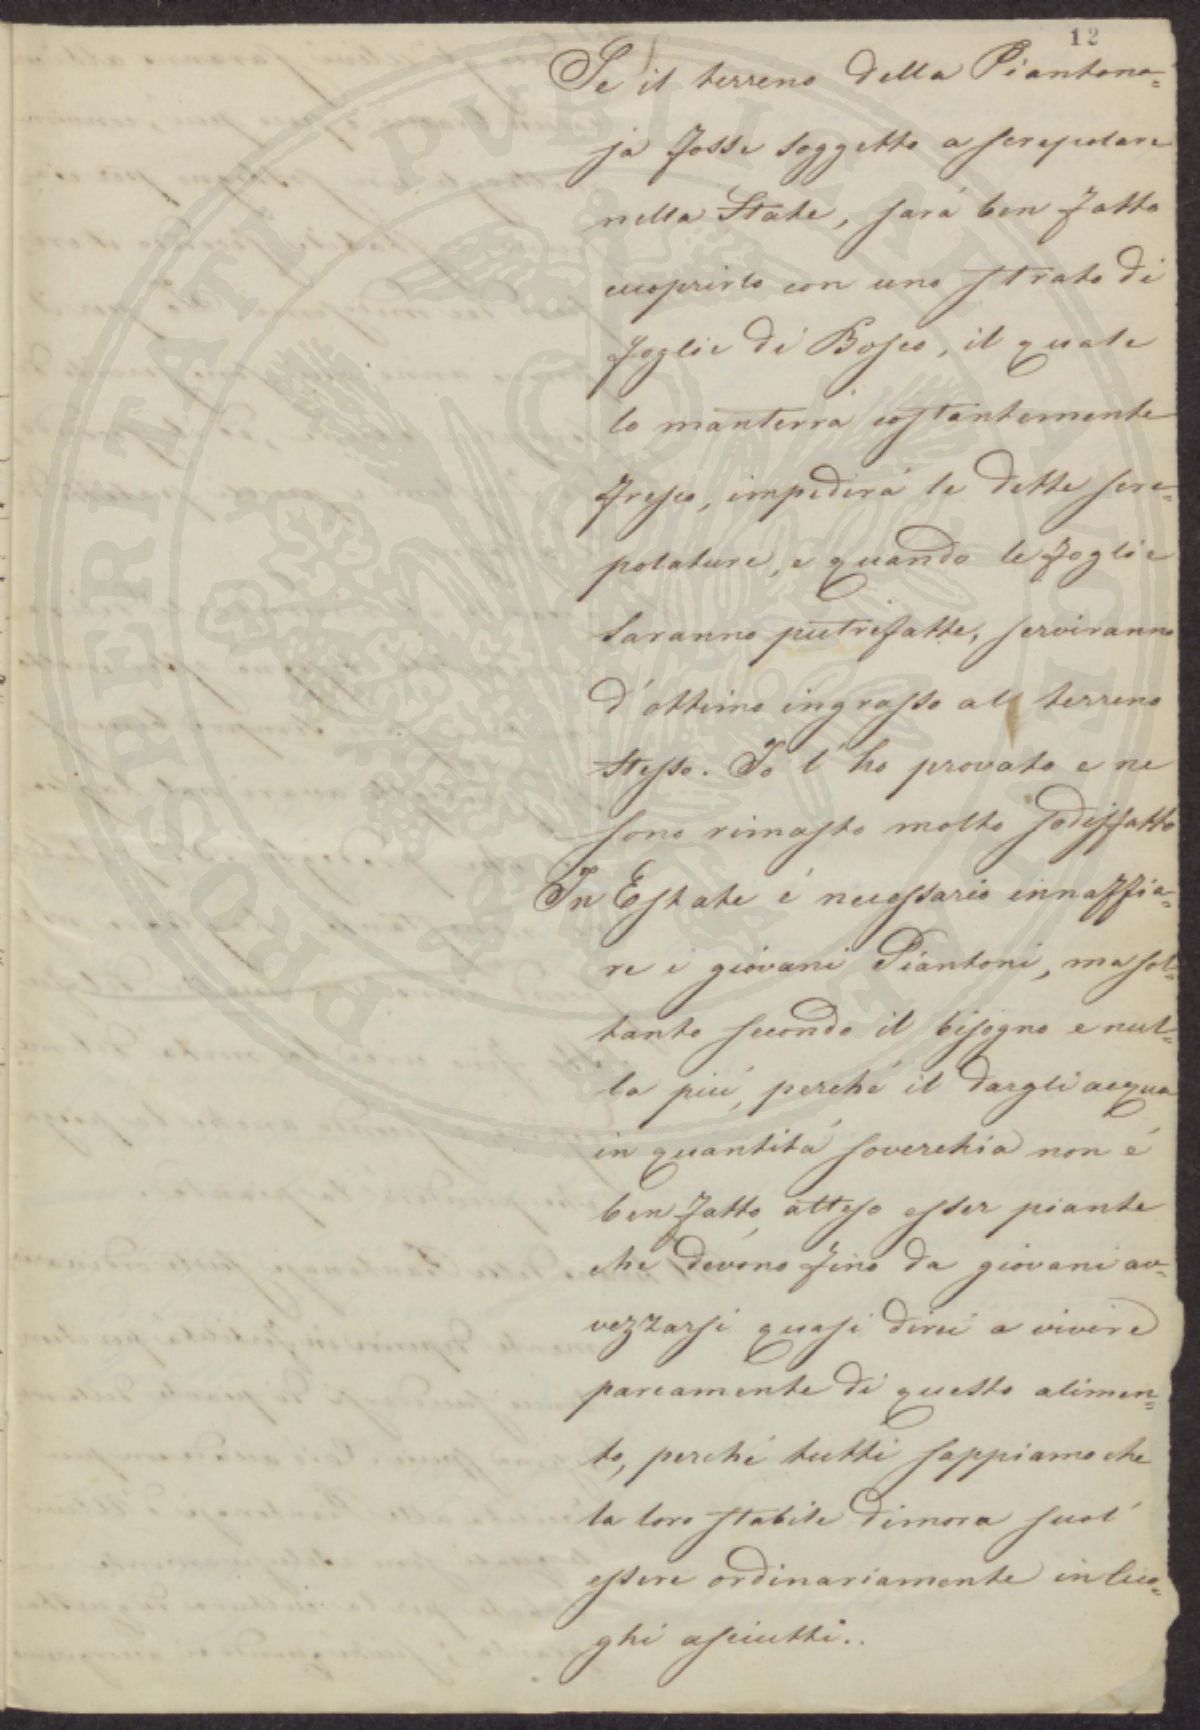 12
Se il terreno della Piantona=
ja fosse soggetto a screpolare
nella State, sará ben fatto
cuoprirlo con uno strato di
foglie di Bosco, il quale
lo manterrá costantemente
fresco, impedirá le dette scre=
polature, e quando le foglie
saranno putrefatte, serviranno
d'ottimo ingrasso al terreno
stesso. Io l'ho provato e ne
sono rimasto molto sodisfatto
In Estate é necessario innaffia=
re i giovani Piantoni, ma sol=
tanto secondo il bisogno e nul=
la piú, perché il dargli acqua
in quantitá soverchia non é
ben fatto, atteso esser piante
che devono fino da giovani av=
vezzarsi quasi direi a vivere
parcamente di questo alimen=
to, perché tutti sappiamo che
la loro stabile dimora suol'
essere ordinariamente in luo=
ghi asciutti..
PROSPERITATI PUBLICAE